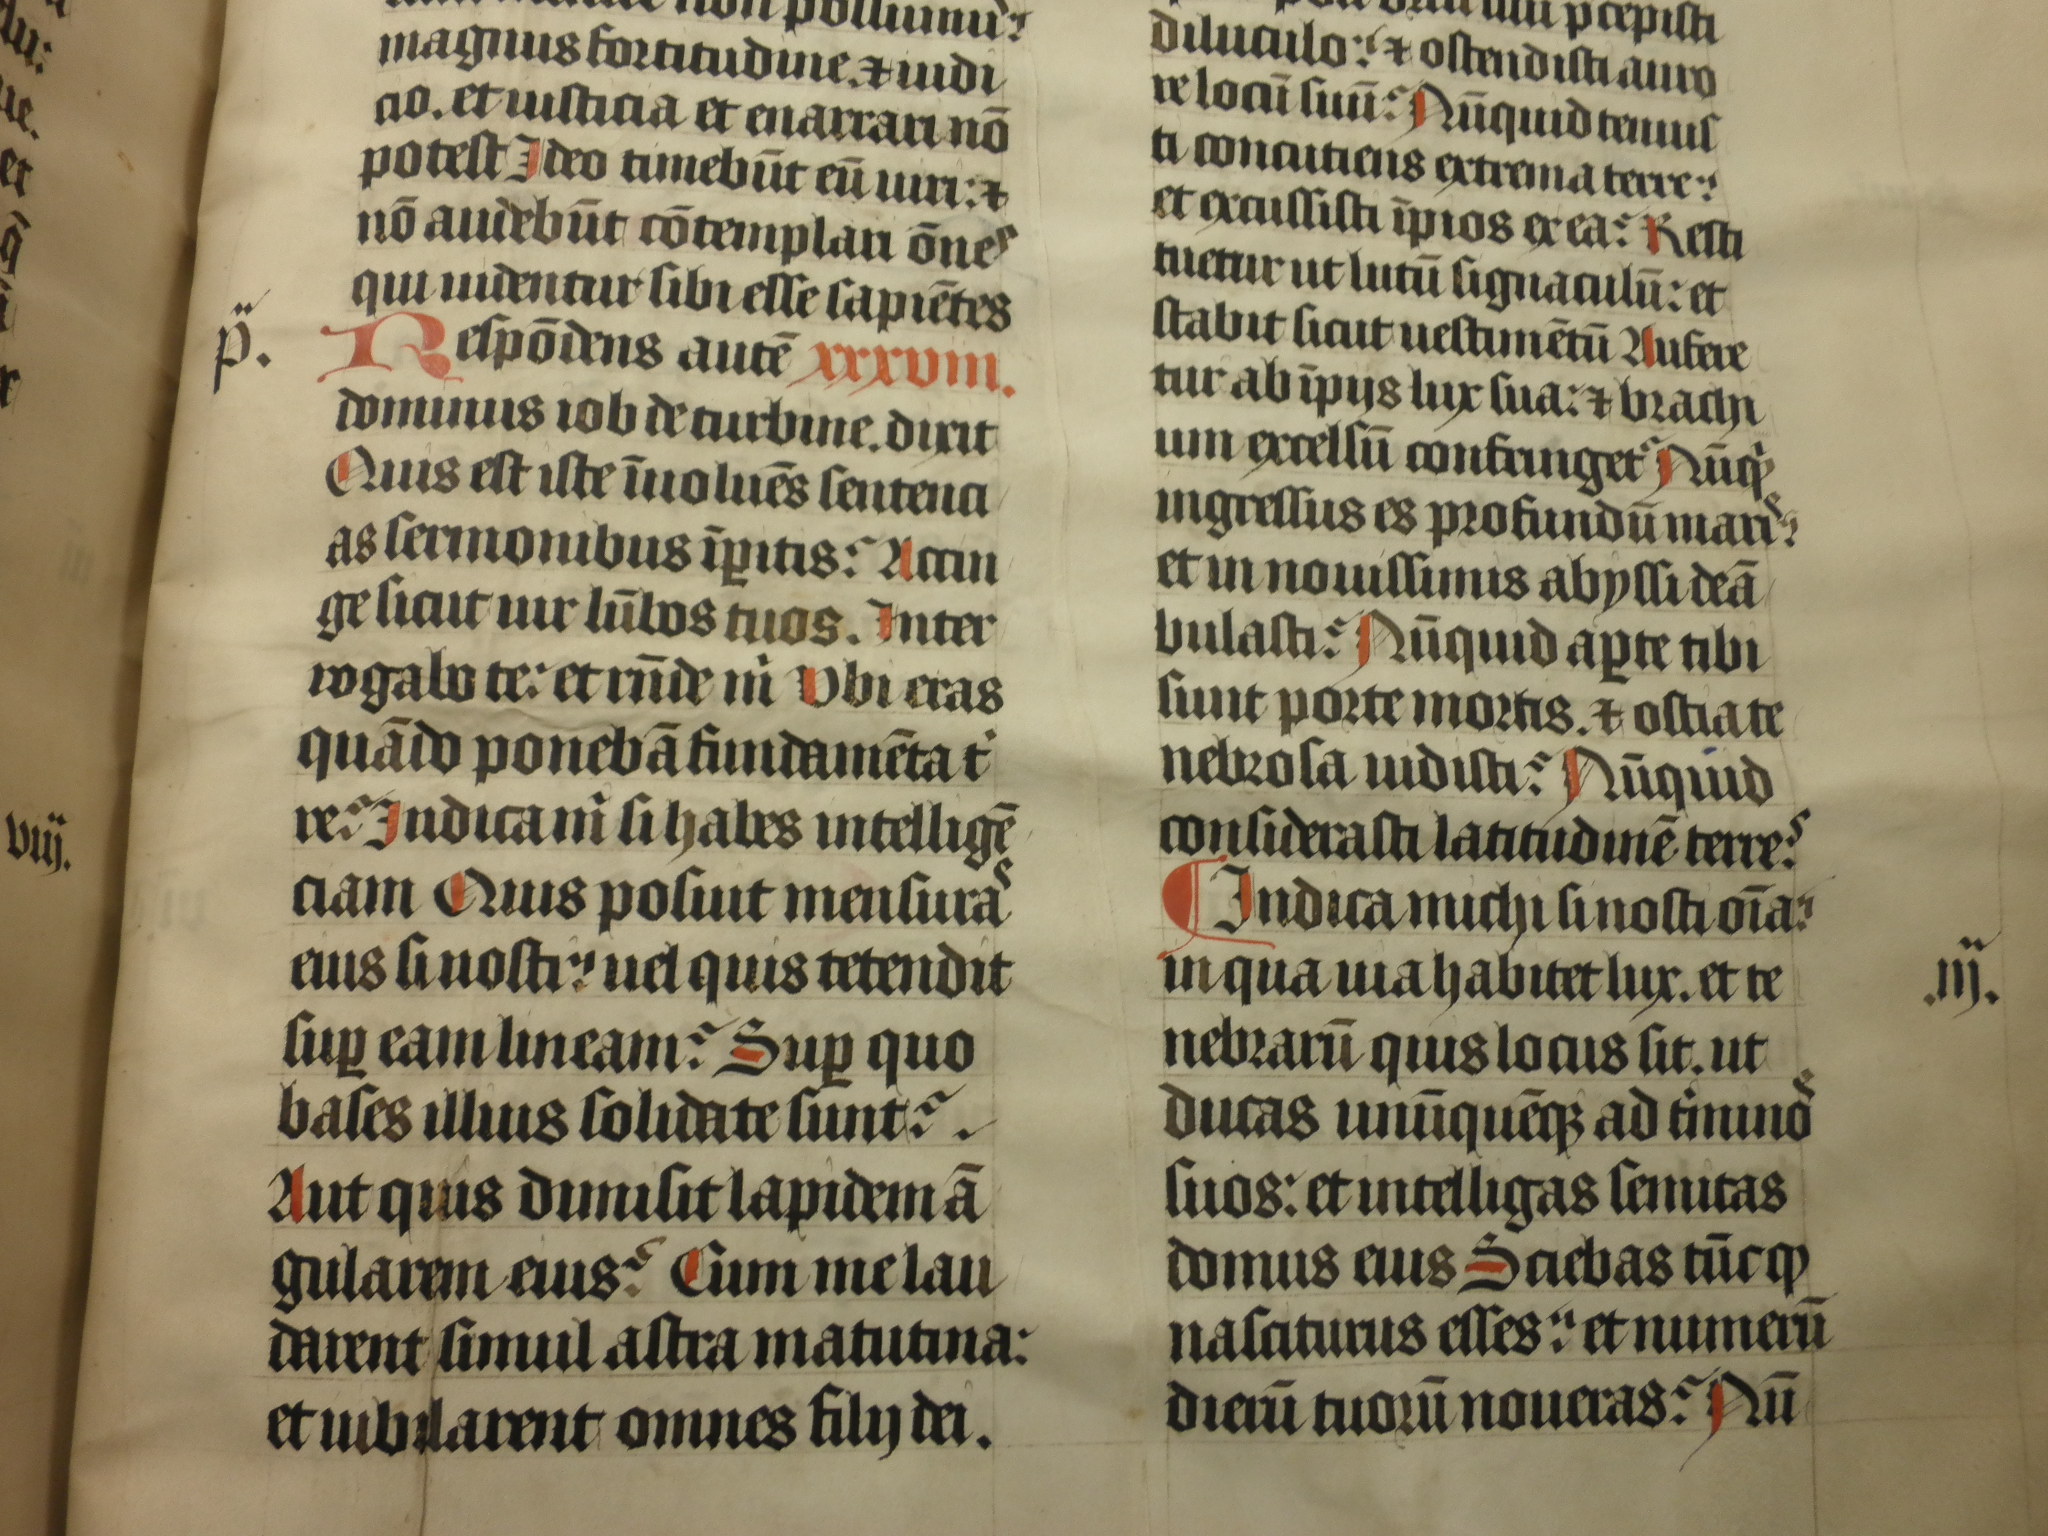 non possumus
magnus fortitudine. ⁊ iudi
cio. et iusticia et enarrari nō
potest Ideo timebūt eū uiri: ⁊
nō audebūt cōtemplari ōnes
qui uidentur sibi esse sapiētes
p̄.
Respōdens autē xxxviii.
dominus iob de turbine. dixit
Quis est iste īuoluēs sentenci
as sermonibus īꝑitis? Accin
ge sicut uir lūbos tuos. Inter
rogabo te: et rn̄de m̄ Vbi eras
quādo ponebā fundamēta t̓
re? Indica m̄ si habes intelligē
ciam Quis posuit mensuras
eius si nosti? uel quis tetendit
suꝑ eam lineam? Suꝑ quo
bases illius solidate sunt?
Aut quis dimisit lapidem ā
gularem eius? Cum me lau
darent simul astra matutina:
et iubilarent omnes filij dei.
viij.
p̄cepisti
diluculo? ⁊ ostendisti auro
re locū suū? Nūquid tenuis
ti concutiens extrema terre?
et excussisti īpios ex ea? Resti
tuetur ut lutū signaculū: et
stabit sicut uestimētū Aufere
tur ab īpijs lux sua: ⁊ brachi
um excelsū confringet? Nūq̓
ingressus es profundū maris?
et in nouissimis abyssi deā
bulasti? Nūquid aꝑte tibi
sunt porte mortis. ⁊ ostia te
nebrosa uidisti? Nūquid
considerasti latitudinē terre?
Indica michi si nosti oīa?
in qua uia habitet lux. et te
nebrarū quis locus sit. ut
ducas unūquēqꝫ ad t̓minos
suos: et intelligas semitas
domus eius Sciebas tūc ꝙ
nasciturus esses? et numerū
dierū tuorū noueras? Nū
.iij.